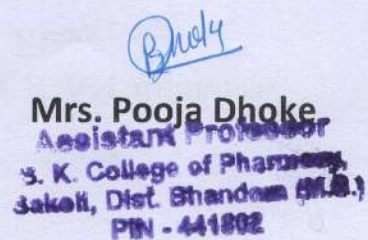 Mrs. Pooja Dhoke
Assistant Professor
S. K. College of Pharmacy,
Sakoli, Dist. Bhandara (M.S.)
PIN - 441802